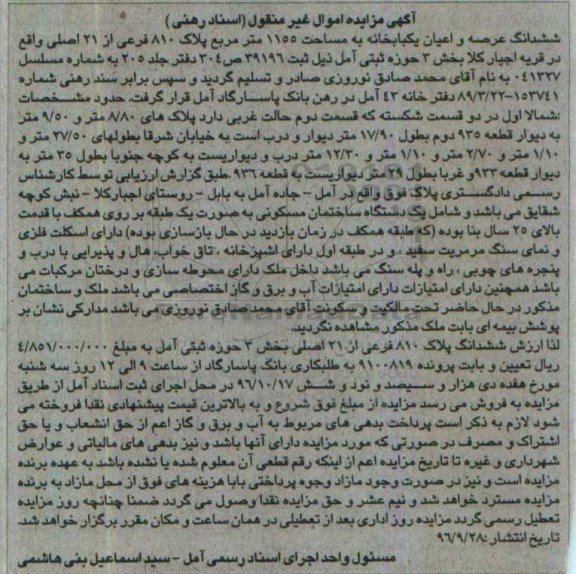 آگهی مزایده اموال غیر منقول (اسناد رهنی)
ششدانگ عرصه و اعیان یکبابخانه به مساحت ۱۱۵۵ متر مربع پلاک ۸۱۰ فرعی از ۲۱ اصلی واقع
در قریه اجبارکلا بخش ۳ حوزه ثبتی آمل ذیل ثبت ۳۹۱۹۶ ص ۳۰۴ دفتر جلد ۲۰۵ به شماره مسلسل
۰۴۱۳۲۷ به نام آقای محمد صادق نوروزی صادر و تسلیم گردید و سپس برابر سند رهنی شماره
۱۵۳۷۴۱-۸۹/۳/۲۲ دفتر خانه ۴۳ آمل در رهن بانک پاسارگاد آمل قرار گرفت. حدود مشخصات
:شمالا اول در دو قسمت شکسته که قسمت دوم حالت غربی دارد پلاک های ۸/۸۰ متر و ۹/۵۰ متر
به دیوار قطعه ۹۳۵ دوم بطول ۱۷/۹۰ متر دیوار و درب است به خیابان شرقا بطولهای ۲۷/۵۰ متر و
۱/۱۰ متر و ۲/۷۰ متر و ۱/۱۰ متر و ۱۲/۳۰ متر درب و دیواریست به کوچه جنوبا بطول ۳۵ متر به
دیوار قطعه ۹۳۳و غربا بطول ۲۹ متر دیواریست به قطعه ۹۳۶ طبق گزارش ارزیابی توسط کارشناس
رسمی دادگستری پلاک فوق واقع در آمل - جاده آمل به بابل - روستای اجبارکلا - نبش کوچه
شقایق می باشد و شامل یک دستگاه ساختمان مسکونی به صورت یک طبقه بر روی همکف با قدمت
بالای ۲۵ سال بنا بوده (که طبقه همکف در زمان بازدید در حال بازسازی بوده) دارای اسکلت فلزی
و نمای سنگ مرمریت سفید و در طبقه اول دارای اشپزخانه ، تاق خواب، هال و پذیرایی با درب و
پنجره های چوبی ، راه و پله سنگ می باشد داخل ملک دارای محوطه سازی و درختان مرکبات می
باشد همچنین دارای امتیازات دارای امتیازات آب و برق و گاز اختصاصی می باشد ملک و ساختمان
مذکور در حال حاضر تحت مالکیت و سکونت آقای محمد صادق نوروزی می باشد مدارکی نشان بر
پوشش بیمه ای بابت ملک مذکور مشاهده نگردید.
لذا ارزش ششدانگ پلاک ۸۱۰ فرعی از ۲۱ اصلی بخش ۳ حوزه ثبتی آمل به مبلغ ۴/۸۵۱/۰۰۰/۰۰۰
ریال تعیین و بابت پرونده ۹۱۰۰۸۱۹ به طلبکاری بانک پاسارگاد از ساعت ۹ الی ۱۲ روز سه شنبه
مورخ هفده دی هزار و سیصد و نود و شش ۹۶/۱۰/۱۷ در محل اجرای ثبت اسناد آمل از طریق
مزایده به فروش می رسد مزایده از مبلغ فوق شروع و به بالاترین قیمت پیشنهادی نقدا فروخته می
شود لازم به ذکر است پرداخت بدهی های مربوط به آب و برق و گاز اعم از حق انشعاب و یا حق
اشتراک و مصرف در صورتی که مورد مزایده دارای آنها باشد و نیز بدهی های مالیاتی و عوارض
شهرداری و غیره تا تاریخ مزایده اعم از اینکه رقم قطعی آن معلوم شده یا نشده باشد به عهده برنده
مزایده است و نیز در صورت وجود مازاد وجوه پرداختی بابا هزینه های فوق از محل مازاد به برنده
مزایده مسترد خواهد شد و نیم عشر و حق مزایده نقدا وصول می گردد ضمنا چنانچه روز مزایده
تعطیل رسمی گردد مزایده روز اداری بعد از تعطیلی در همان ساعت و مکان مقرر برگزار خواهد شد.
تاریخ انتشار :۹۶/۹/۲۸
مسئول واحد اجرای اسناد رسمی آمل - سید اسماعیل بنی هاشمی